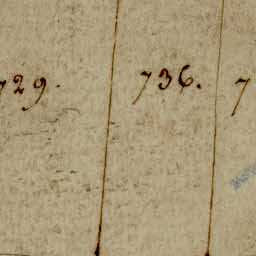 729. 736. 7